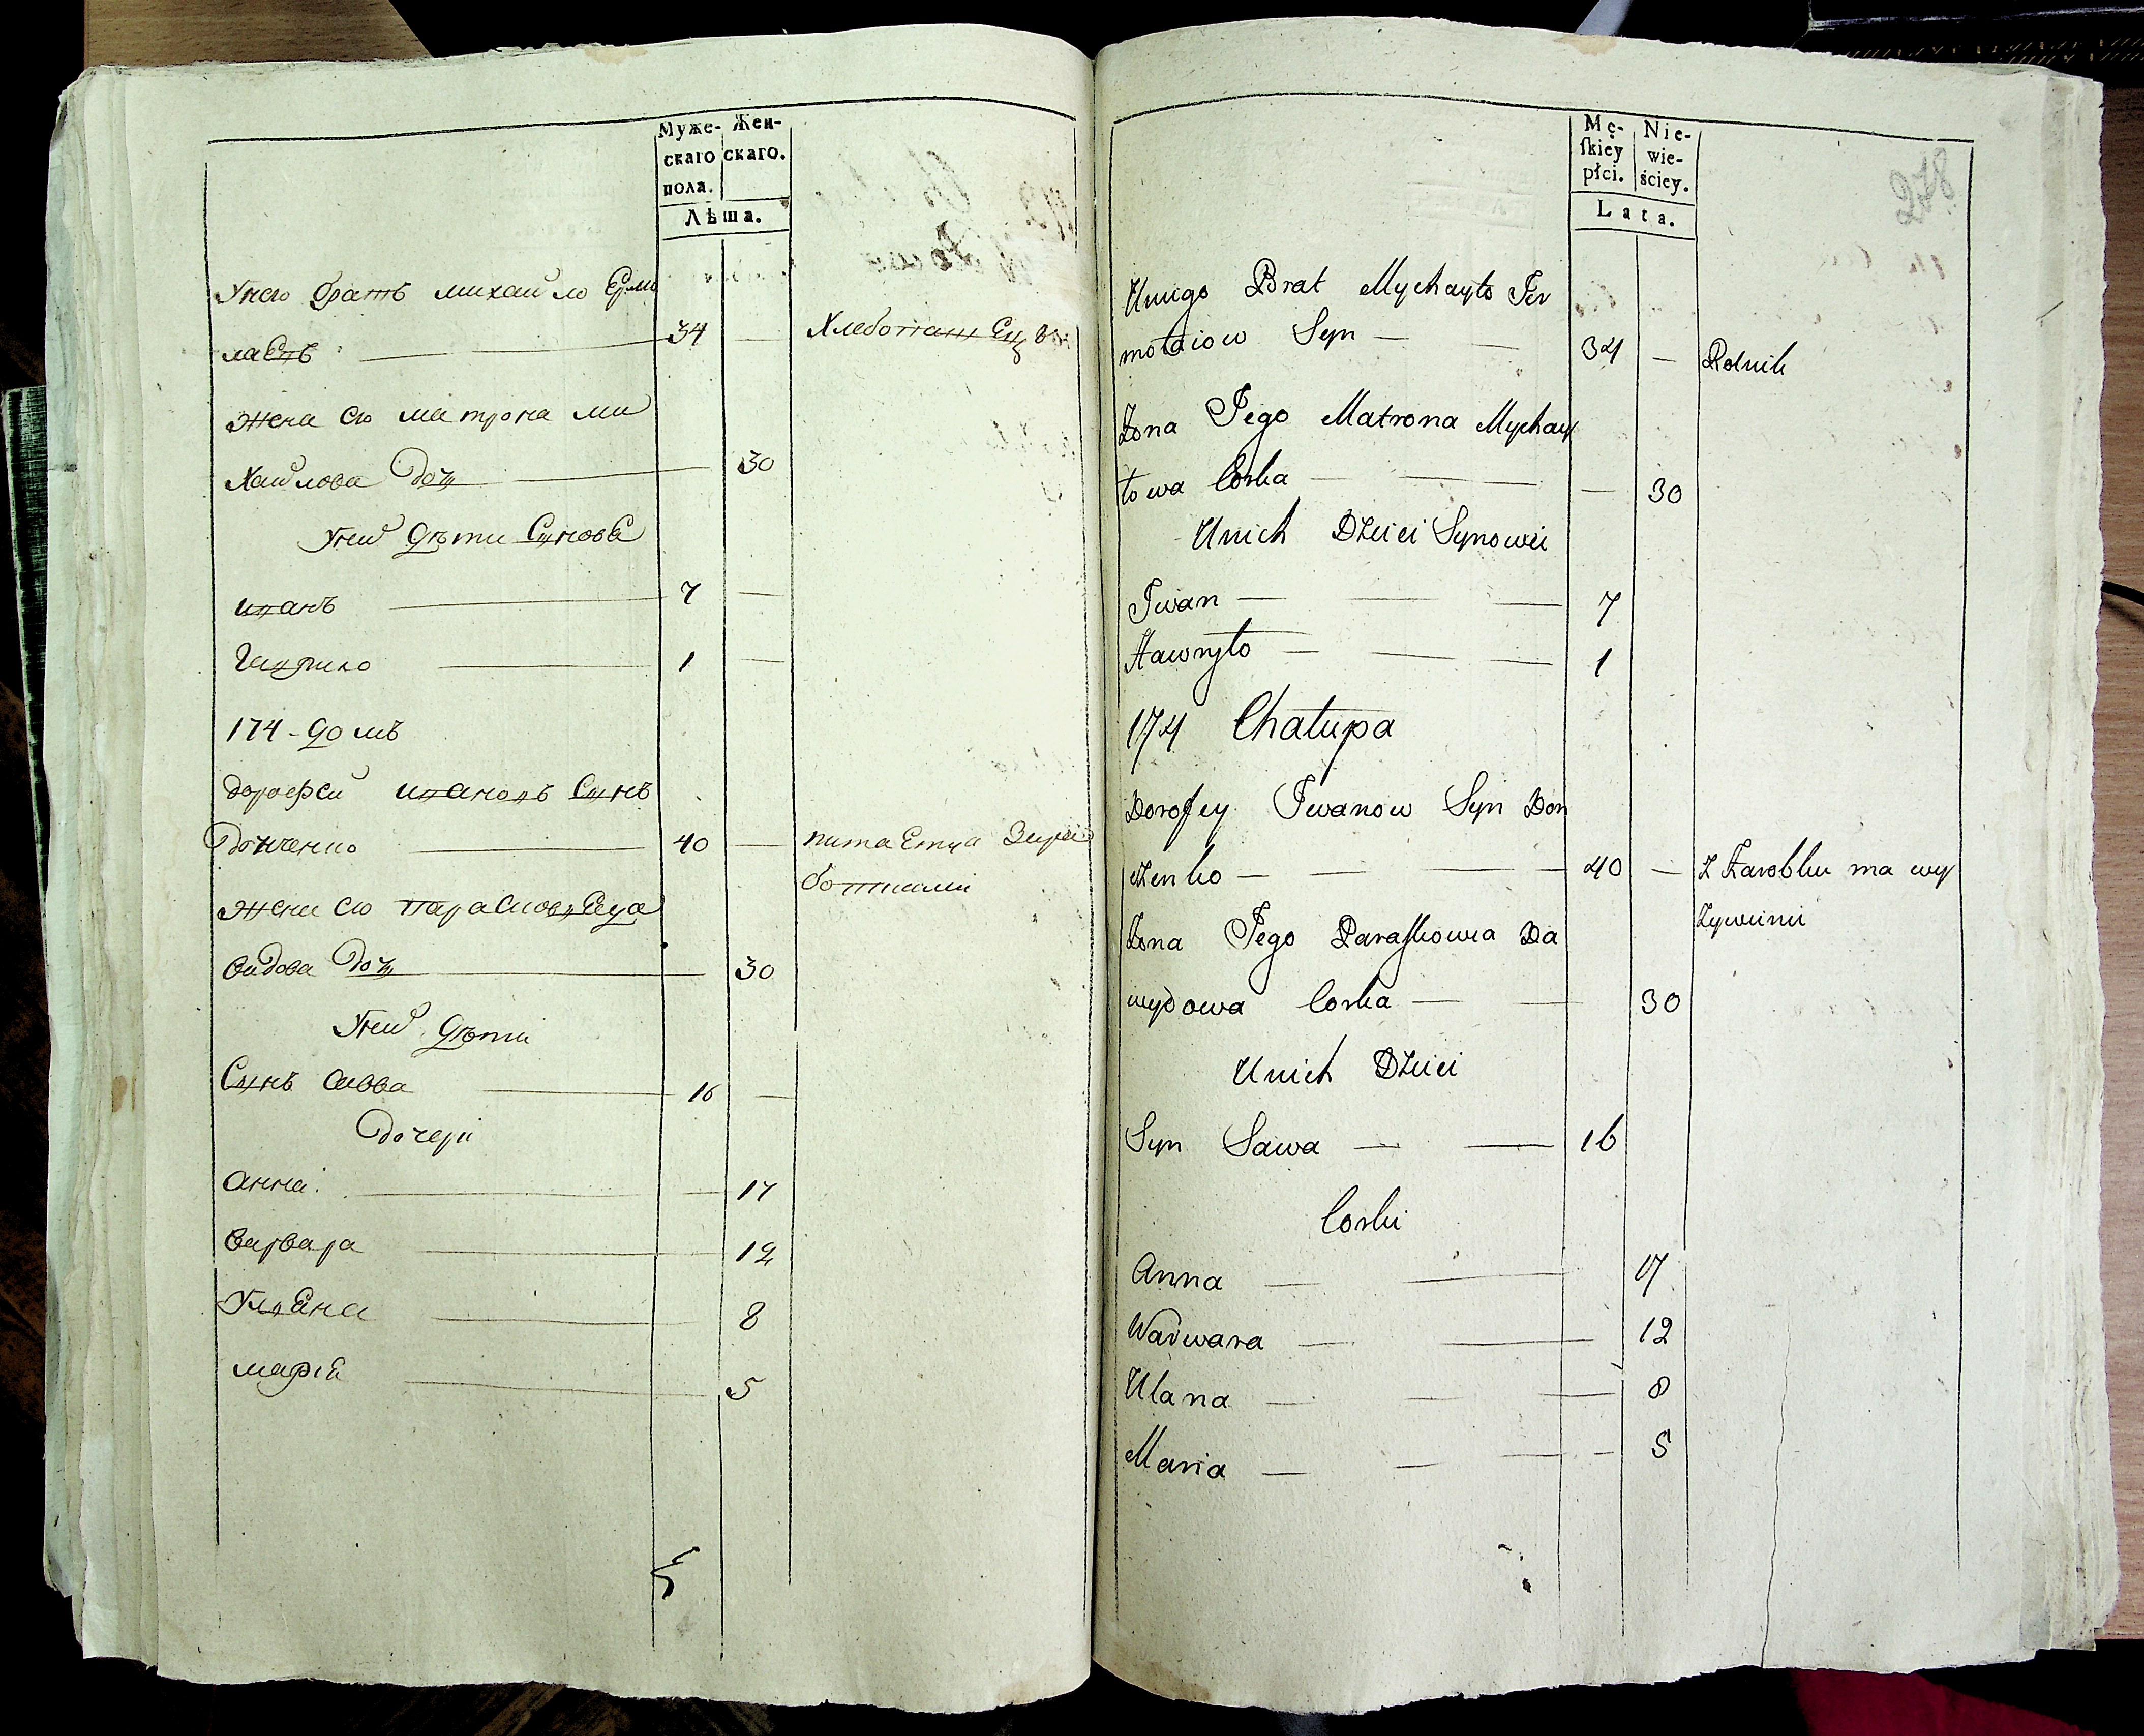 Муже-
скаго
пола.
Жен-
скаго.
Лѣта.
Унего братъ михайло Ерми
лаевъ 34 — Хлебопашецъ
жена его матрона ми
хайлова дочь 30
Уних дѣти Сыновя
иванъ 7 —
Гаврило 1 —
174 - домъ
дорофей ивановъ Сынъ
Донченко 40 — питается Зара
ботками
жена его парасковея да
видова дочь 30
Уних дѣти
Сынъ Савва 16 —
дочери
анна 17
варвара 12
Уляна 8
марія 5
Mę-
ſkiey
płci.
Nie-
wie-
ściey.
Lata.
278
Uniego Brat Mychayło Jer
mołaiow Syn — — 34 — Rolnik
Żona Jego Matrona Mychay
łowa Corka — — — — 30
Unich Dzieci Synowie
Iwan — — — 7
Hawryło — — — 1
174 Chałupa
Dorofey Iwanow Syn Don
czenko — — — — 40 — Z Zarobku ma wy
żywienie
Żona Jego Paraſkowia Da
wydowa Corka — — 30
Unich Dzieci
Syn Sawa — — 16
Corki
Anna — — 17
Warwara — — 12
Ulana — — — 8
Maria — — — — 5